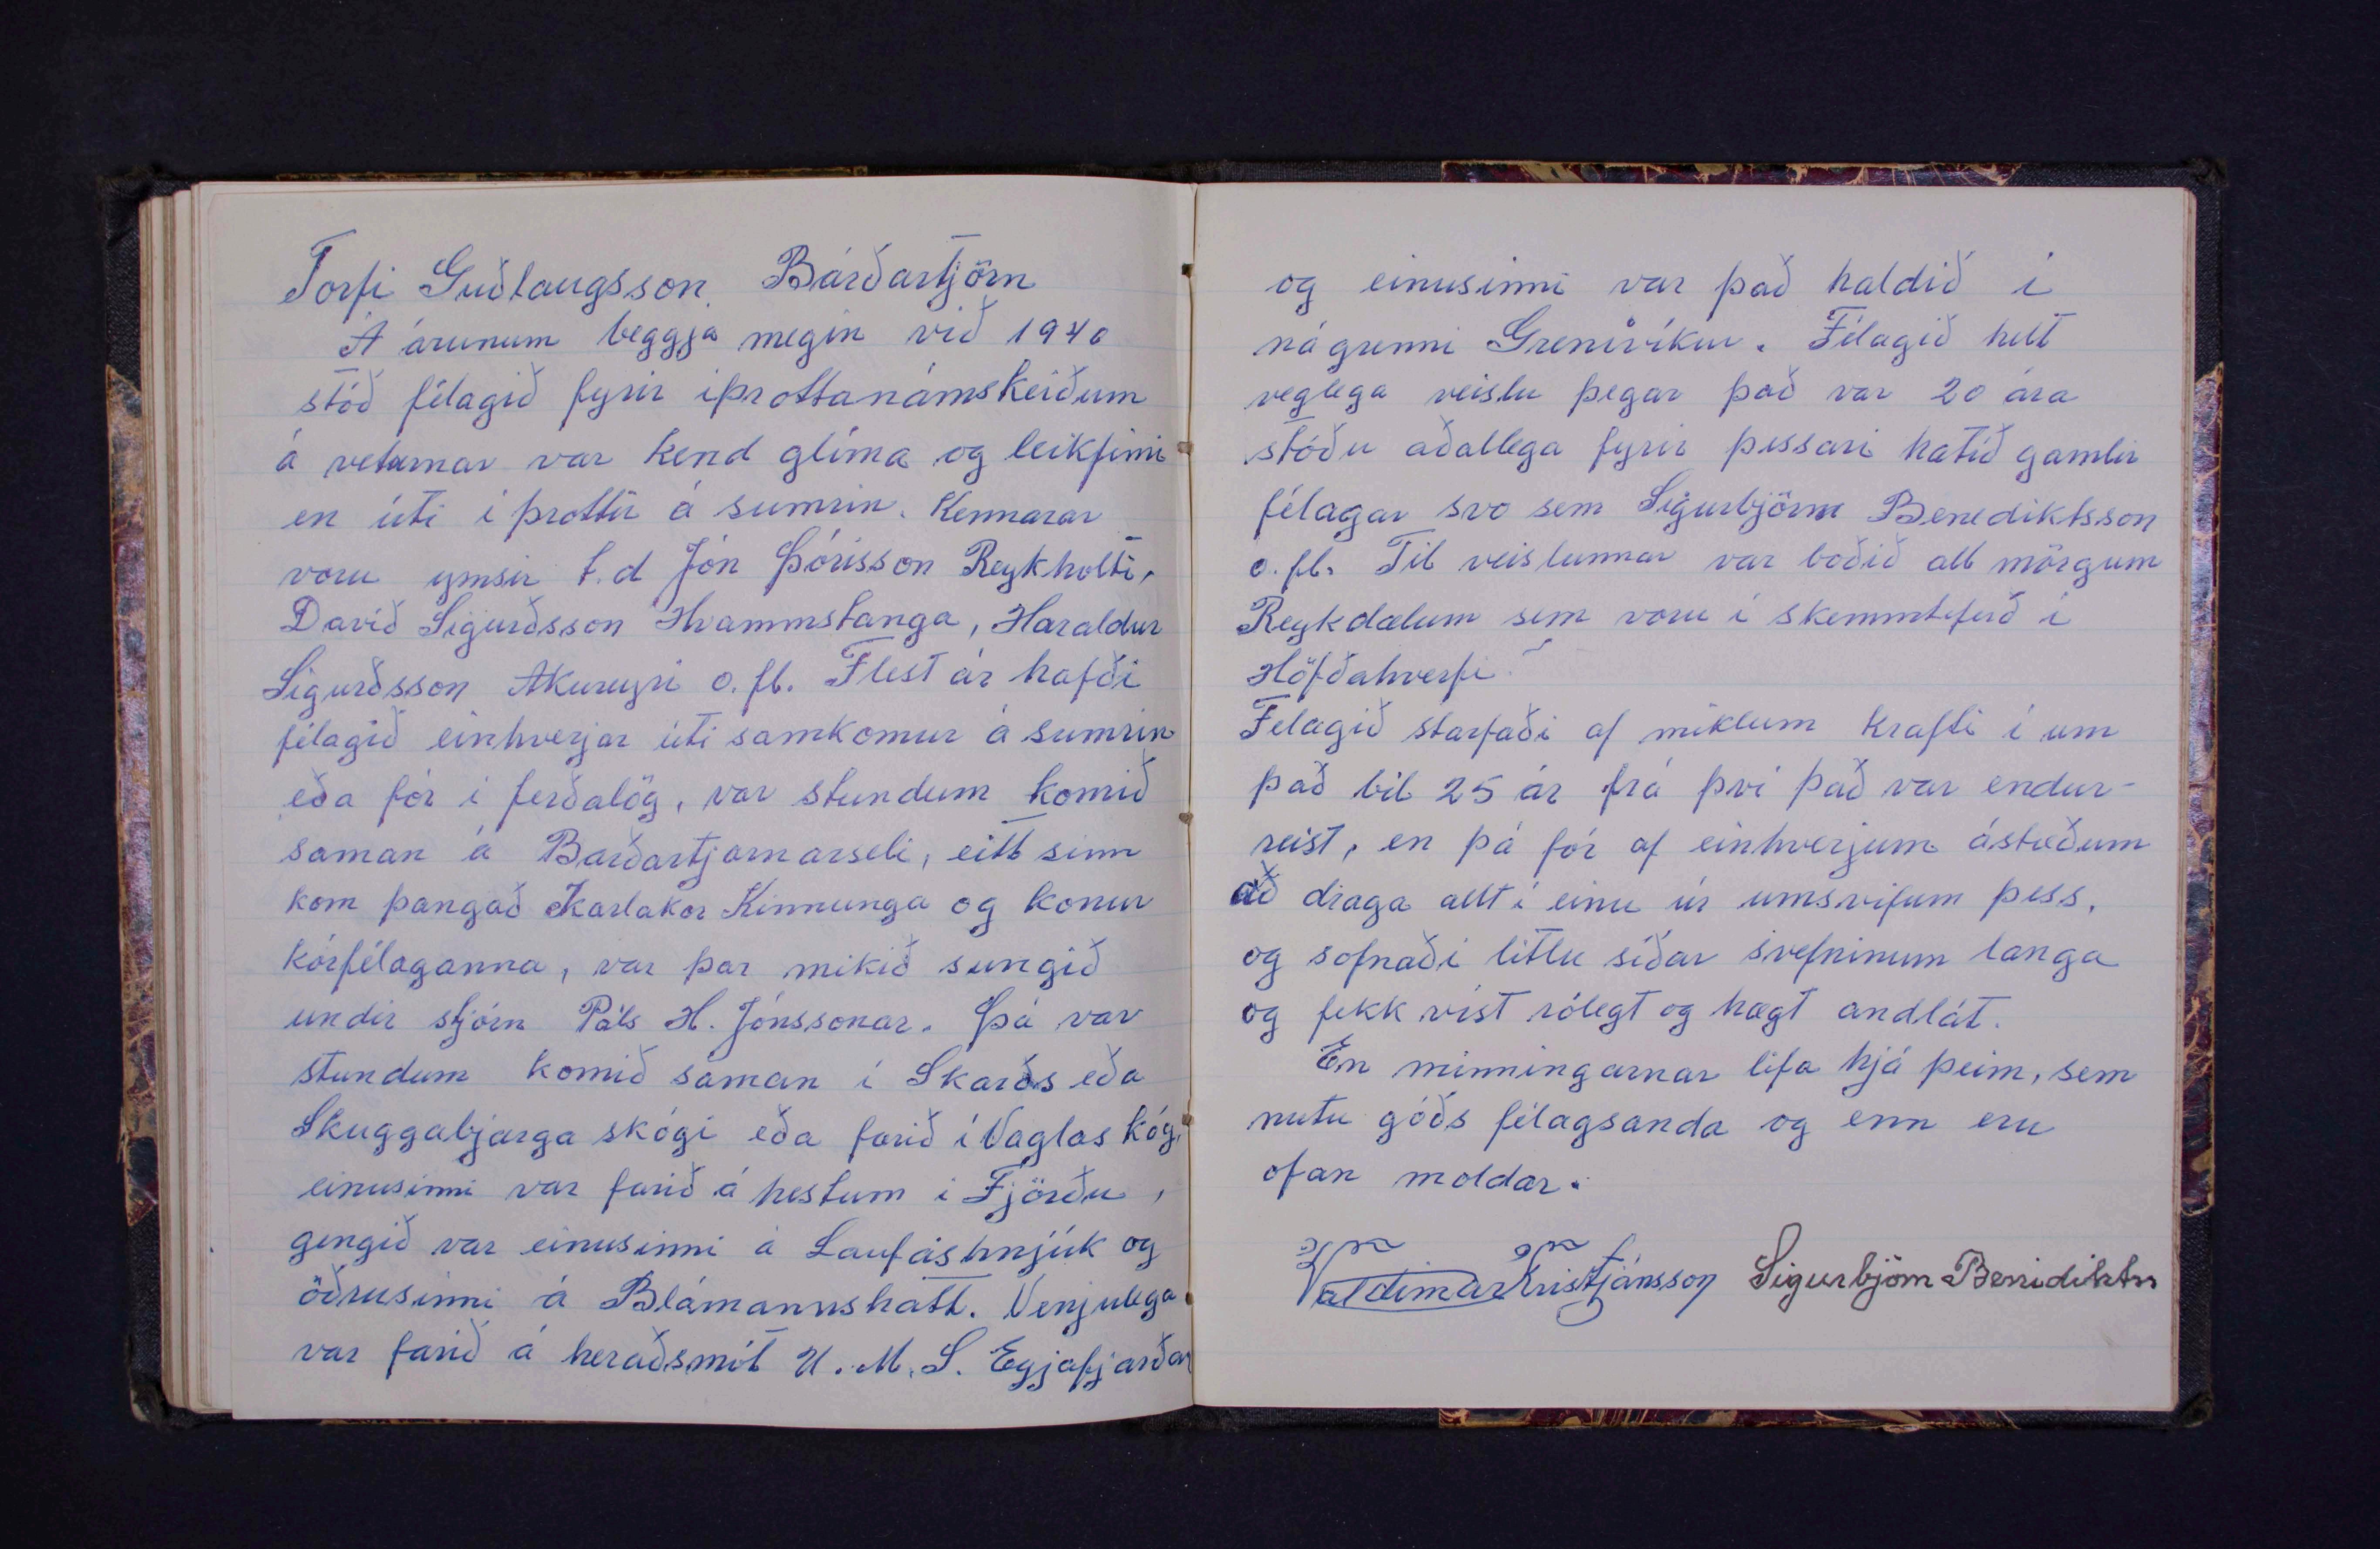 Torfi Guðlaugsson Bárðartjörn
Á árunum beggja megin við 1940
stóð félagið fyrir iþrottanámskeiðum
á veturnar var kend glíma og leikfimi
en úti í þrottir á sumrin. Kennarar
voru ymsir t.d Jón Þórisson Reykholti,
Davíð Sigurðsson Hvammstanga, Haraldur
Sigurðsson Akureyri o.fl. Flest ár hafði
félagið einhverjar úti samkomur á sumrin
eða fór í ferðalög, var stundum komið
saman á Barðartjarnarseli, eitt sinn
kom þangað Karlakor Kinnunga og konur
kórfélaganna, var þar mikið sungið
undir stjórn Páls H. Jónssonar. Þá var
stundum komið saman í Skarðs eða
Skuggabjarga skógi eða farið í Vaglaskóg,
einusinni var farið á hestum i Fjörðu,
gengið var einusinni á Laufáshnjúk og
öðrusinni á Blámannshatt. Venjulega
var farið á heraðsmót U.M.S. Eyjafjarðar
og einusinni var það haldið í
nágrenni Grenivíkur. Félagið helt
veglega veislu þegar það var 20 ára
stóðu aðallega fyrir þessari hatíð gamlir
félagar svo sem Sigurbjörn Benediktsson
o.fl. Til veislunnar var boðið all mörgum
Reykdælum sem voru í skemmtiferð í
Höfðahverfi
Felagið starfaði af miklum krafti í um
það bil 25 ár frá því það var endur-
reist, en þá fór af einhverjum ástæðum
að draga allt í einu úr umsvifum þess,
og sofnaði litlu síðar svefninum langa
og fekk víst rólegt og hægt andlát.
En minningarnar lifa hjá þeim, sem
nutu góðs félagsanda og enn eru
ofan moldar.
Valdimar Kristjánsson Sigurbjörn Benidiktss